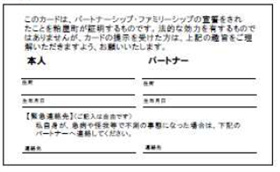 このカードは、パートナーシップ・ファミリーシップの宣誓をされ
たことを粕屋町が証明するものです。法的な効力を有するもので
はありませんが、カードの提示を受けた方は、上記の趣旨をご理
解いただきますよう、お願いいたします。
本人 パートナー
住所 住所
生年月日 生年月日
【緊急連絡先】(ご記入は自由です)
私自身が、急病や怪我等で不測の事態になった場合は、下記の
パートナーへ連絡してください。
連絡先 連絡先